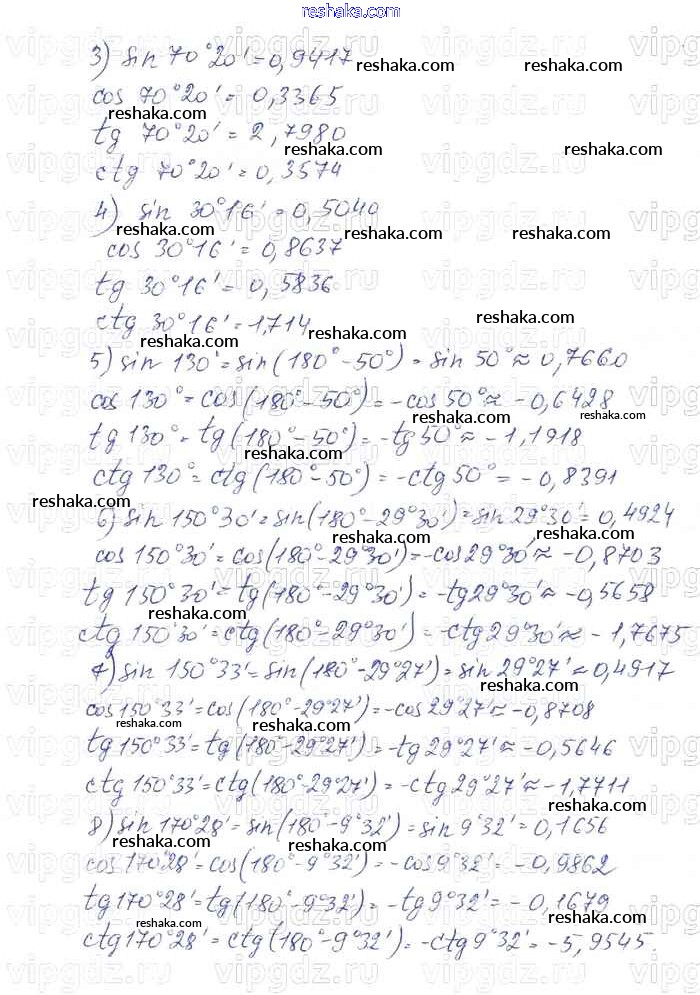 reshaka.com
3) sin 70°20' = 0,9417
cos 70°20' = 0,3365
tg 70°20' = 2,7980
ctg 70°20' = 0,3574
4) sin 30°16' = 0,5040
cos 30°16' = 0,8637
tg 30°16' = 0,5836
ctg 30°16' = 1,714
5) sin 130° = sin(180° - 50°) = sin 50° ≈ 0,7660
cos 130° = cos(180° - 50°) = -cos 50° ≈ -0,6428
tg 130° = tg(180° - 50°) = -tg 50° ≈ -1,1918
ctg 130° = ctg(180° - 50°) = -ctg 50° = -0,8391
6) sin 150°30' = sin(180° - 29°30') = sin 29°30' = 0,4924
cos 150°30' = cos(180° - 29°30') = -cos 29°30' ≈ -0,8703
tg 150°30' = tg(180° - 29°30') = -tg 29°30' ≈ -0,5658
ctg 150°30' = ctg(180° - 29°30') = -ctg 29°30' ≈ -1,7675
7) sin 150°33' = sin(180° - 29°27') = sin 29°27' ≈ 0,4917
cos 150°33' = cos(180° - 29°27') = -cos 29°27' ≈ -0,8708
tg 150°33' = tg(180° - 29°27') = -tg 29°27' ≈ -0,5646
ctg 150°33' = ctg(180° - 29°27') = -ctg 29°27' ≈ -1,7711
8) sin 170°28' = sin(180° - 9°32') = sin 9°32' = 0,1656
cos 170°28' = cos(180° - 9°32') = -cos 9°32' = -0,9862
tg 170°28' = tg(180° - 9°32') = -tg 9°32' = -0,1679
ctg 170°28' = ctg(180° - 9°32') = -ctg 9°32' = -5,9545.